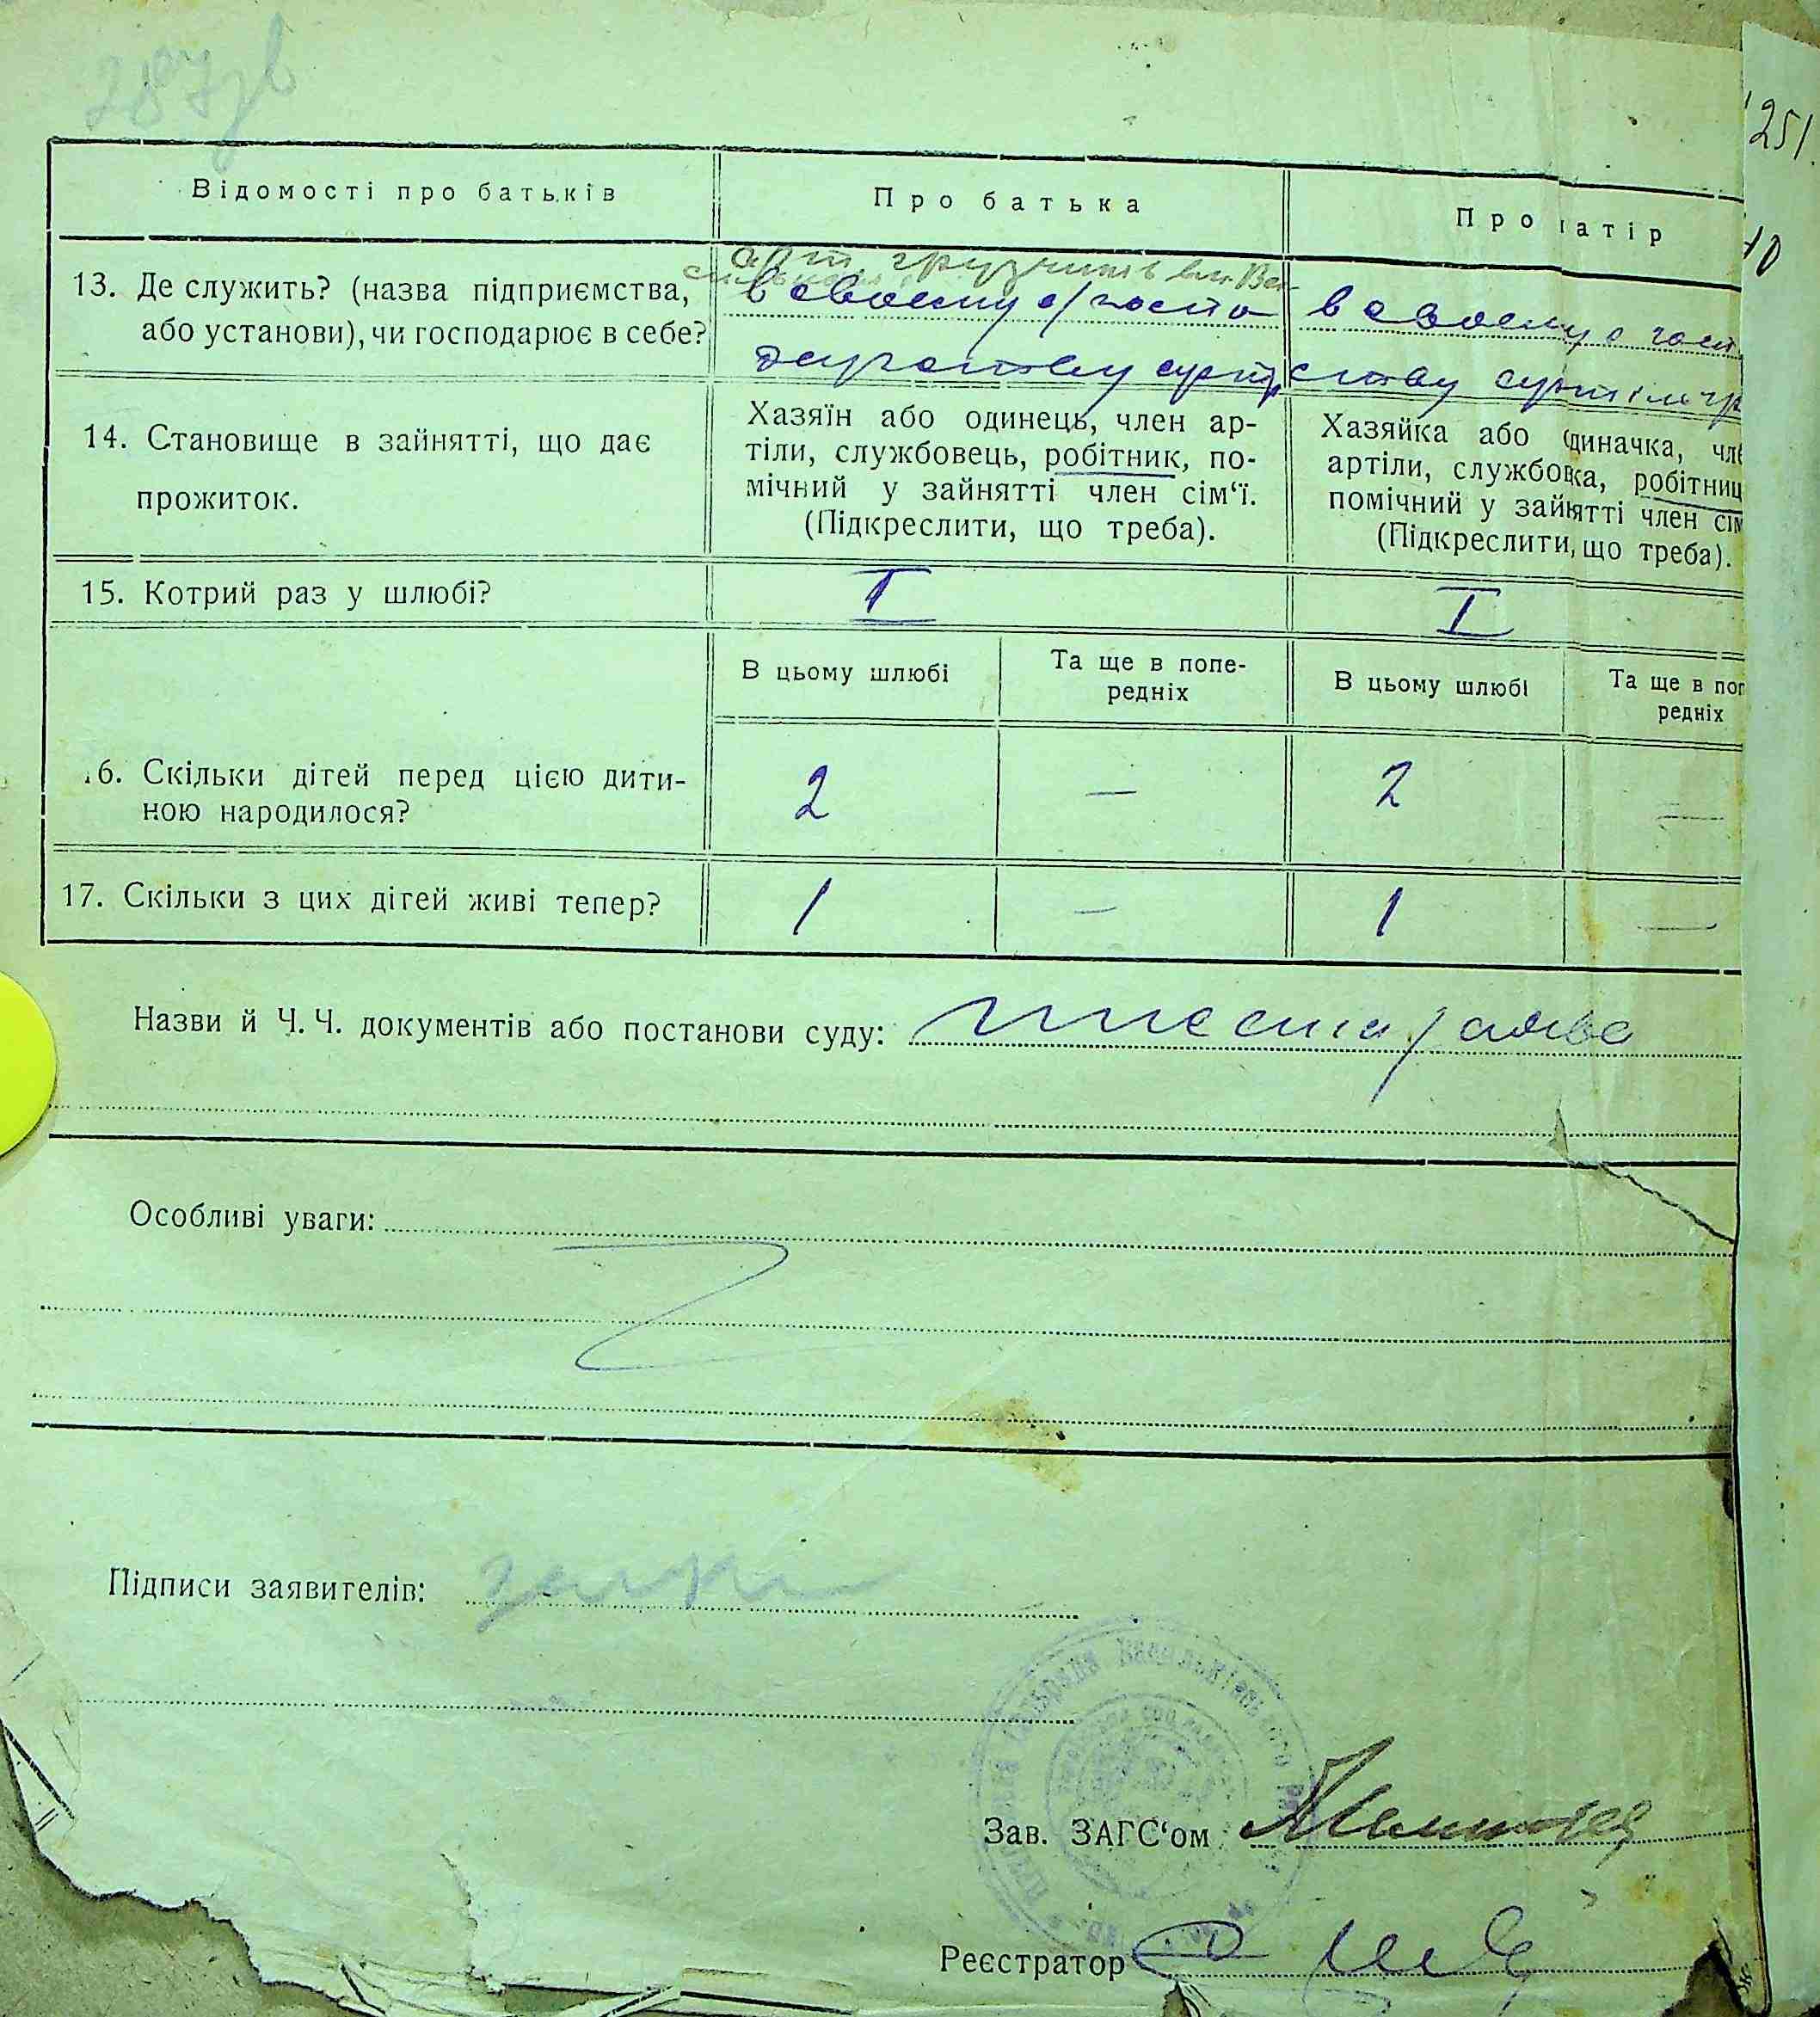 287зв
251.
10
Відомості про батьків
Про батька
Про матір
13. Де служить? (назва підприємства,
або установи), чи господарює в себе?
арт. грузчиків
в своему с/госпо
в своему с госп
14. Становище в зайнятті, що дає
прожиток.
Хазяїн або одинець, член ар-
тіли, службовець, робітник, по-
мічний у зайнятті член сім‘ї.
(Підкреслити, що треба).
Хазяйка або одиначка, чле
артіли, службовка, робітниц
помічний у зайнятті член сім
(Підкреслити, що треба).
15. Котрий раз у шлюбі?
I
I
В цьому шлюбі
Та ще в попе-
редніх
В цьому шлюбі
Та ще в поп
редніх
16. Скільки дітей перед цією дити-
ною народилося?
2
—
2
—
17. Скільки з цих дітей живі тепер?
1
—
1
—
Назви й Ч. Ч. документів або постанови суду:
Особливі уваги:
Підписи заявителів:
Зав. ЗАГС‘ом
Реєстратор